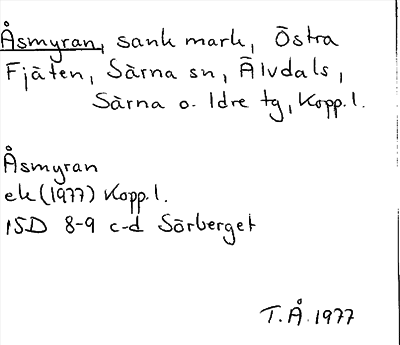 Åsmyran, sank mark, Östra
Fjäten, Särna sn, Älvdals,
Särna o. Idre tg, Kopp.l.
Åsmyran
ek (1977) Kopp.l.
ISD 8-9 c-d Sörberget
T.Å.1977